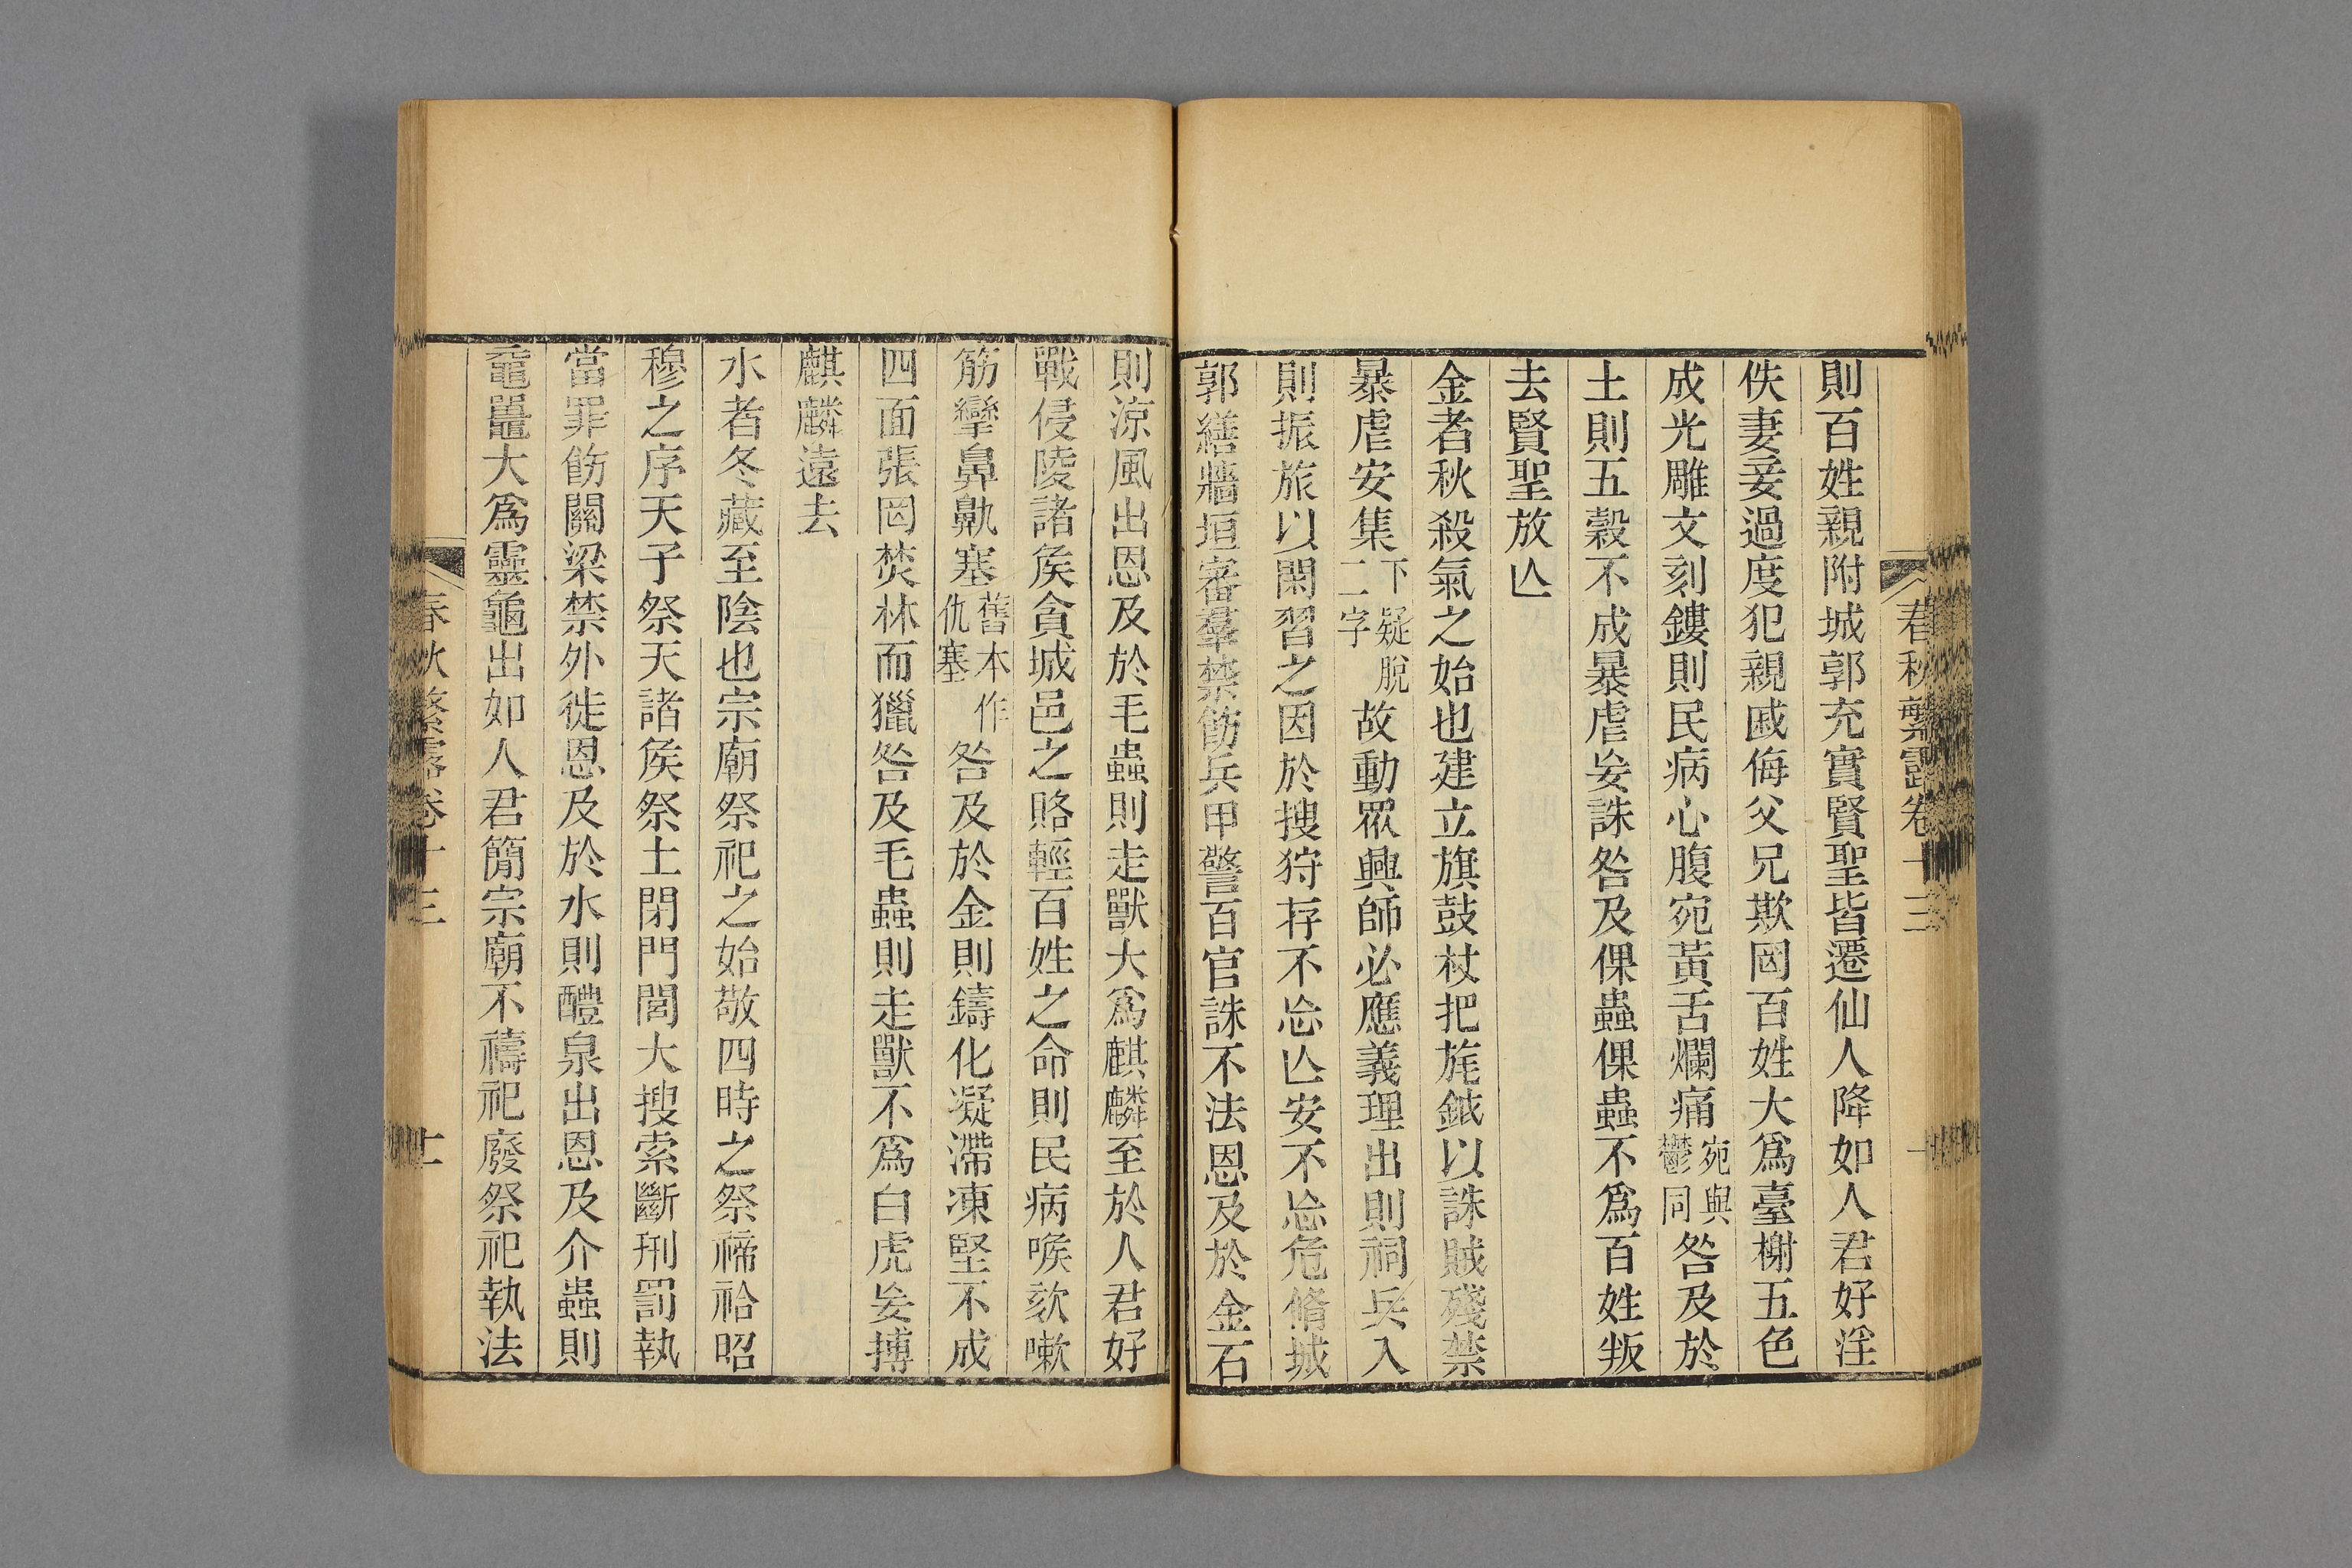 春秋繁露卷十三
則百姓親附城郭充實賢聖皆遷仙人降如人君好淫
佚妻妾過度犯親戚侮父兄欺罔百姓大爲臺榭五色
成光雕文刻鏤則民病心腹宛黃舌爛痛宛與鬱同咎及於
土則五穀不成暴虐妄誅咎及倮蟲倮蟲不爲百姓叛
去賢聖放亾
金者秋殺氣之始也建立旗鼓杖把旄鉞以誅賊殘禁
暴虐安集下疑脫二字故動眾興師必應義理出則祠兵入
則振旅以閑習之因於搜狩存不忘亾安不忘危脩城
郭繕牆垣審羣禁飭兵甲警百官誅不法恩及於金石
則涼風出恩及於毛蟲則走獸大爲麒麟至於人君好
戰侵陵諸矦貪城邑之賂輕百姓之命則民病喉欬嗽
筋攣鼻鼽塞舊本作仇塞咎及於金則鑄化凝滯凍堅不成
四面張罔焚林而獵咎及毛蟲則走獸不爲白虎妄搏
麒麟遠去
水者冬藏至陰也宗廟祭祀之始敬四時之祭禘祫昭
穆之序天子祭天諸矦祭土閉門閭大搜索斷刑罰執
當罪飭關梁禁外徙恩及於水則醴泉出恩及介蟲則
黿鼉大爲靈龜出如人君簡宗廟不禱祀廢祭祀執法
春秋繁露卷十三